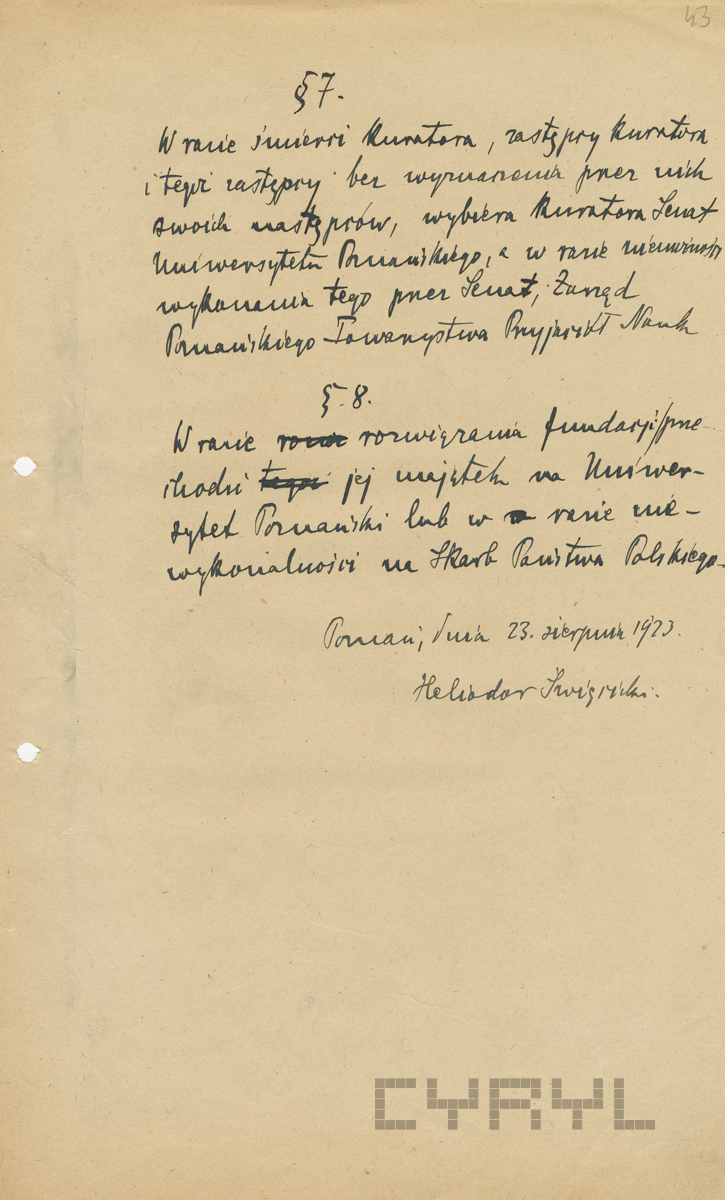 43
§ 7.
W razie śmierci Kuratora, zastępcy Kuratora
i tegoż zastępcy bez wyznaczenia przez nich
swoich następców, wybiera Kuratora Senat
Uniwersytetu Poznańskiego, a w razie niemożności
wykonania tego przez Senat, Zarząd
Poznańskiego Towarzystwa Przyjaciół Nauk
§ 8.
W razie rozwiązania fundacji prze-
chodzi jej majątek na Uniwer-
sytet Poznański lub w razie nie-
wykonalności na Skarb Państwa Polskiego.
Poznań, dnia 23. sierpnia 1923.
Heliodor Święcicki.
CYRYL